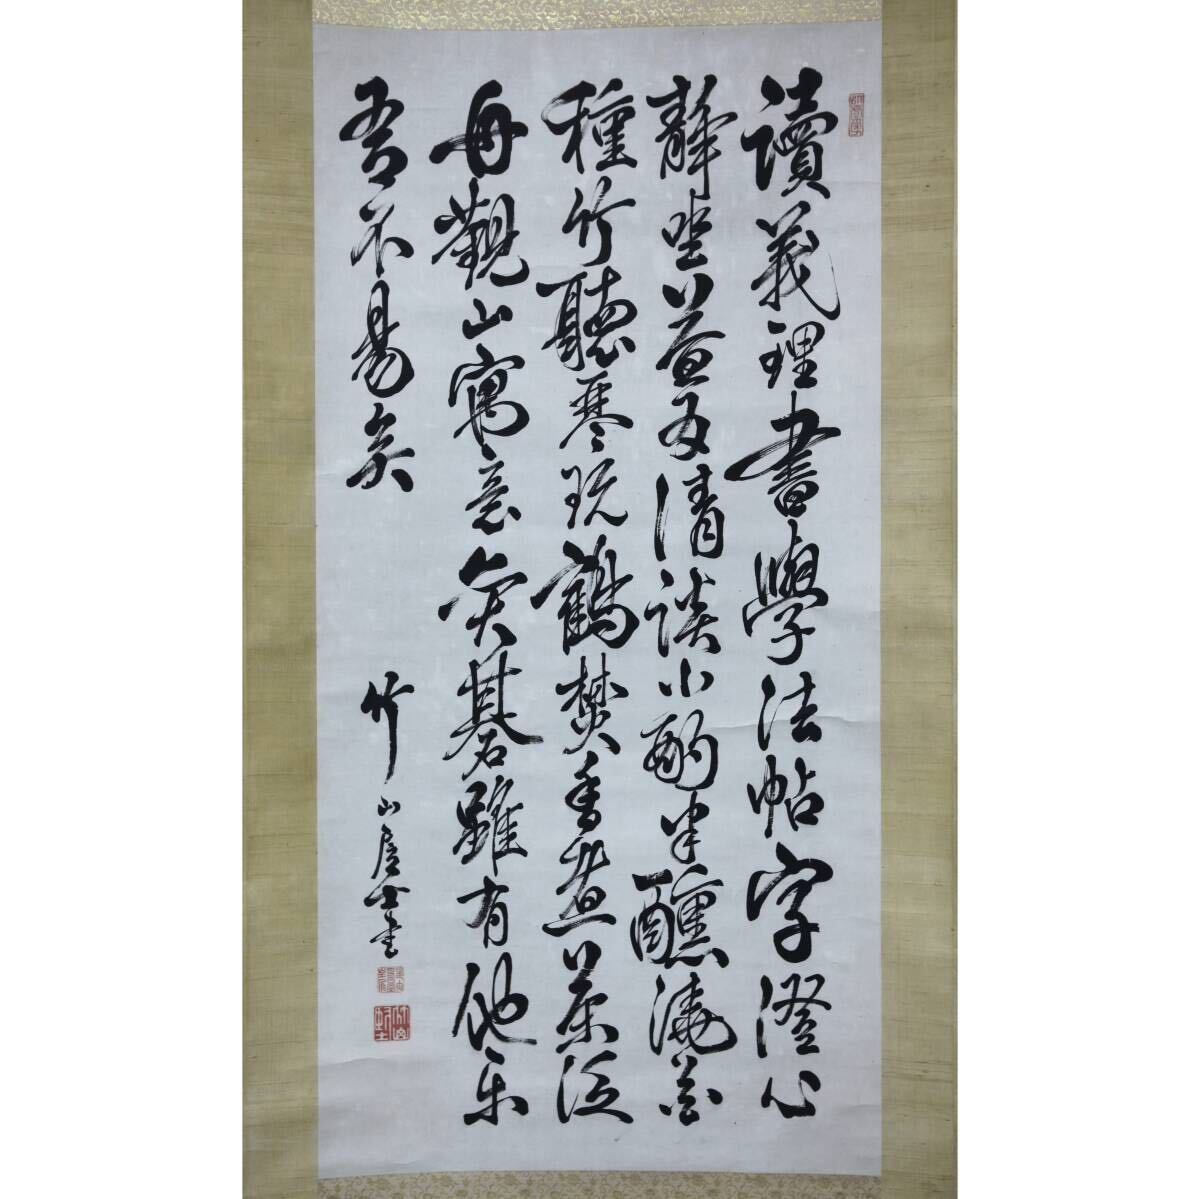 讀義理書學法帖字澄心
靜坐益友清談小酌半醺澆花
種竹聽琴玩鶴焚香煮茶泛
舟觀山寓意奕碁雖有他樂
吾不易矣
竹山居士書